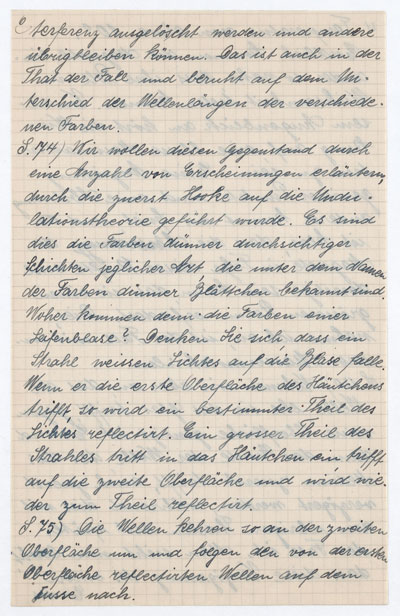 terferenz ausgelöscht werden und andere
übrigbleiben können. Das ist auch in der
That der Fall und beruht auf dem Un-
terschied der Wellenlängen der verschiede-
nen Farben.
S. 74) Wir wollen diesen Gegenstand durch
eine Anzahl von Erscheinungen erläutern,
durch die zuerst Hooke auf die Undu-
lationstheorie geführt wurde. Es sind
dies die Farben dünner durchsichtiger
Schichten jeglicher Art, die unter dem Namen
der Farben dünner Blättchen bekannt sind.
Woher kommen denn die Farben einer
Seifenblase? Denken Sie sich dass ein
Strahl weissen Lichtes auf die Blase falle.
Wenn er die erste Oberfläche des Häutchens
trifft so wird ein bestimmter Theil des
Lichtes reflectirt. Ein grosser Theil des
Strahles tritt in das Häutchen ein trifft
auf die zweite Oberfläche und wird wie-
der zum Theil reflectirt.
S. 75) Die Wellen kehren so an der zweiten
Oberfläche um und folgen den von der ersten
Oberfläche reflectirten Wellen auf dem
Fusse nach.